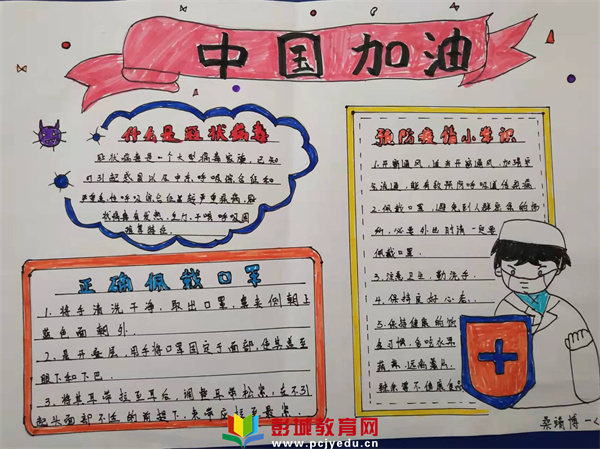 中国加油
什么是冠状病毒
冠状病毒是一个大型病毒家族,已知
可引起感冒以及中东呼吸综合征和
严重急性呼吸综合征等较严重疾病.冠
状病毒有发热、乏力、干咳、呼吸困
难等特征.
正确佩戴口罩
1、将手清洗干净,取出口罩,鼻夹侧朝上
蓝色面朝外.
2、展开叠层,用手将口罩固定于面部,使其盖至
眼下和下巴.
3、将其耳带挂至耳后,调整耳带松紧,在不引
起头面部不适的前提下,夹带应
预防疫情小常识
1.开窗通风,
气流通,能有效预防呼吸道传染病.
2.佩戴口罩,避免到人群密集的场
所,必要外出时请一定要
佩戴口罩.
3.注意卫生,勤洗手.
4.保持良好心态.
5.保持健康的饮
食习惯,多吃水果
蔬菜,远离
辣条等不健康食品
桑瑀博
彭城教育网
www.pcjyedu.cn